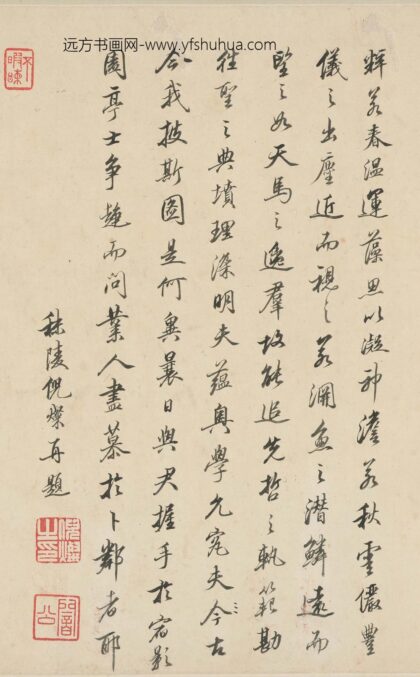 远方书画网-www.yfshuhua.com
粹若春温運藻思以凝神澹若秋雲儼豐
儀之出塵近而視之若淵魚之潜鱗遠而
望之如天馬之逸羣故能追先哲之軌範勘
往聖之典墳理深明夫蘊奥學允究夫今古
今我披斯圖是何異曩日與君握手於宿影
園亭士争趋而問業人盡慕於卜鄰者耶
秣陵倪燦再題
倪燦之印
闇公